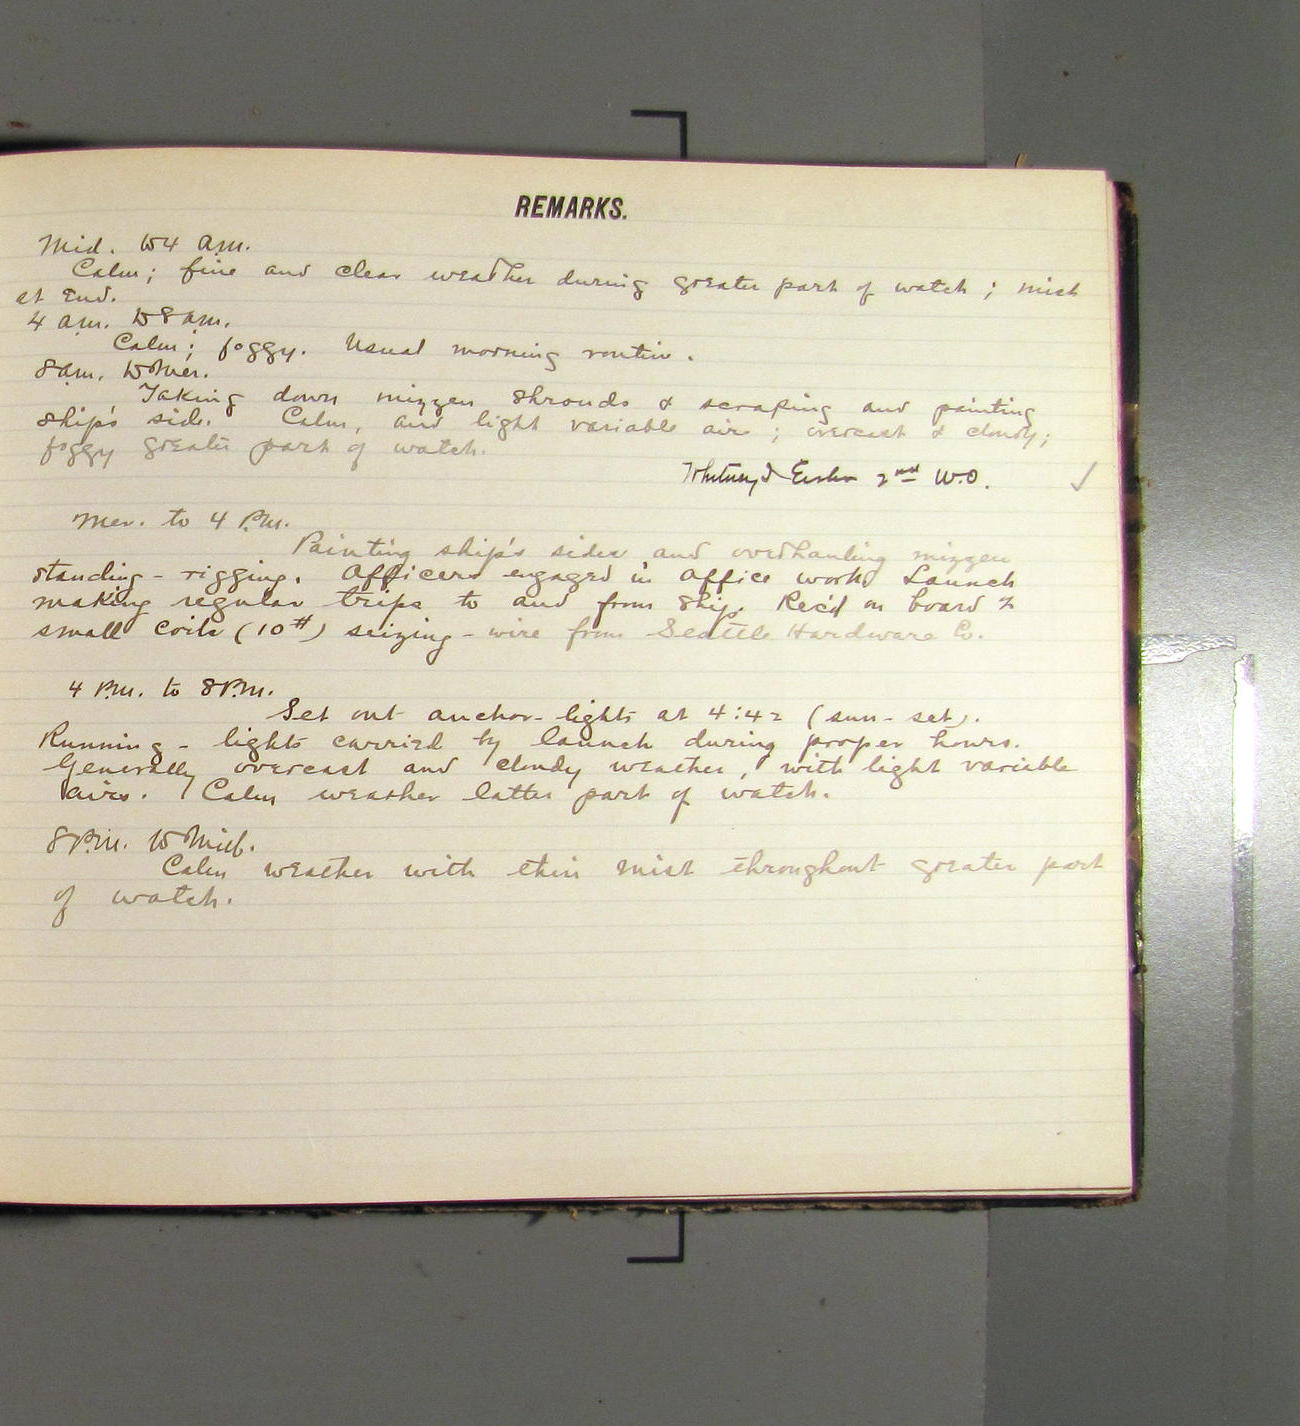 REMARKS.
Mid. to 4 a.m.
Calm; fine and clear weather during greater part of watch; mist
at End.
4 am. to 8 am.
Calm; foggy. Usual morning routin.
8 am. to Mer.
Taking down mizzen shrouds & scraping and painting
ship's side. Calm, and light variable airs; overcast & cloudy;
foggy greater part of watch.
2nd W.O.
Mer. to 4 P.M.
Painting ship's sides and overhauling mizzen
standing-rigging. Officers engaged in office work. Launch
making regular trips to and from ship. Rec'd on board 2
small coils (10#) seizing-wire from Seattle Hardware Co.
4 P.M. to 8 P.M.
Set out anchor-lights at 4:42 (sun-set).
Running-lights carried by launch during proper hours.
Generally overcast and cloudy weather, with light variable
airs. Calm weather latter part of watch.
8 P.M. to Mid.
Calm weather with thin mist throughout greater part
of watch.